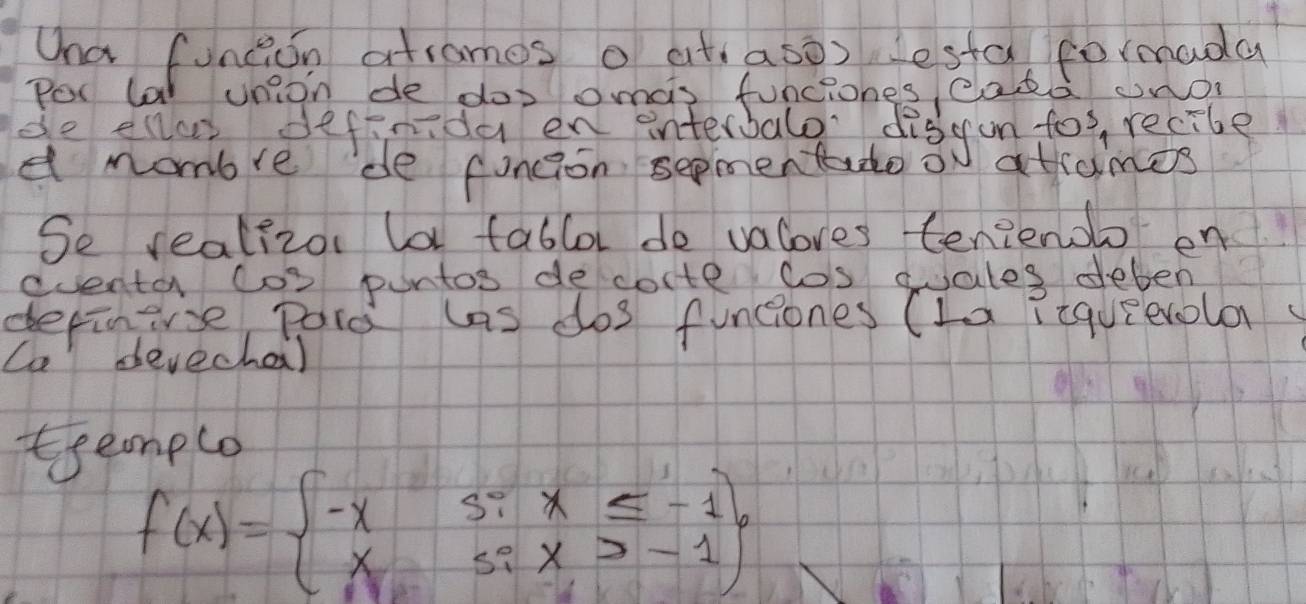 Una función atramos o atrasos esta formada
Por la unión de dos omais funciones, cada una
de ellas definida en intervalo disyuntos, recibe
el nombre de función segmentado o atramos
Se realiza la tabla de valores teniendo en
cuenta los puntos de corte los cuales deben
definirse Para las dos funciones (La izquierda y
la derecha)
Ejemplo
f(x) = { -x si x ≤ -1 }
x si x > -1